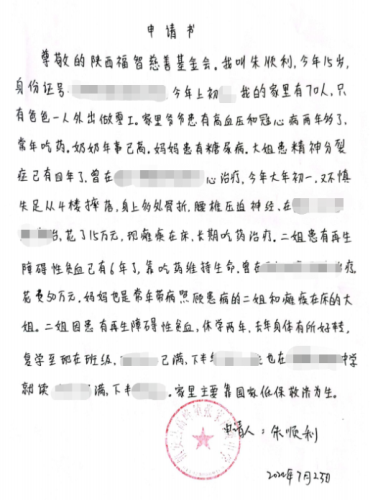 申请书
尊敬的陕西福智慈善基金会。我叫朱顺利,今年15岁,
身份证号 今年上初 我的家里有7口人,只
有爸爸一人外出做零工。家里爷爷患有高血压和冠心病两年多了,
常年吃药。奶奶年事已高。妈妈患有糖尿病。大姐患精神分裂
症已有四年了,曾在 心治疗,今年大年初一,又不慎
失足从4楼摔落,身上多处骨折,腰椎压迫神经,在
治,花了15万元,现瘫痪在床,长期吃药治疗。二姐患有再生
障碍性贫血已有6年了,靠吃药维持生命,曾在
花费50万元,妈妈也是常年带病照顾患病的二姐和瘫痪在床的大
姐。二姐因患有再生障碍性贫血,休学两年,去年身体有所好转,
复学至现在班级, 已满,下 也在 中学
就读 满,下 。家里主要靠国家低保救济为生。
申请人:朱顺利
2020年7月23日